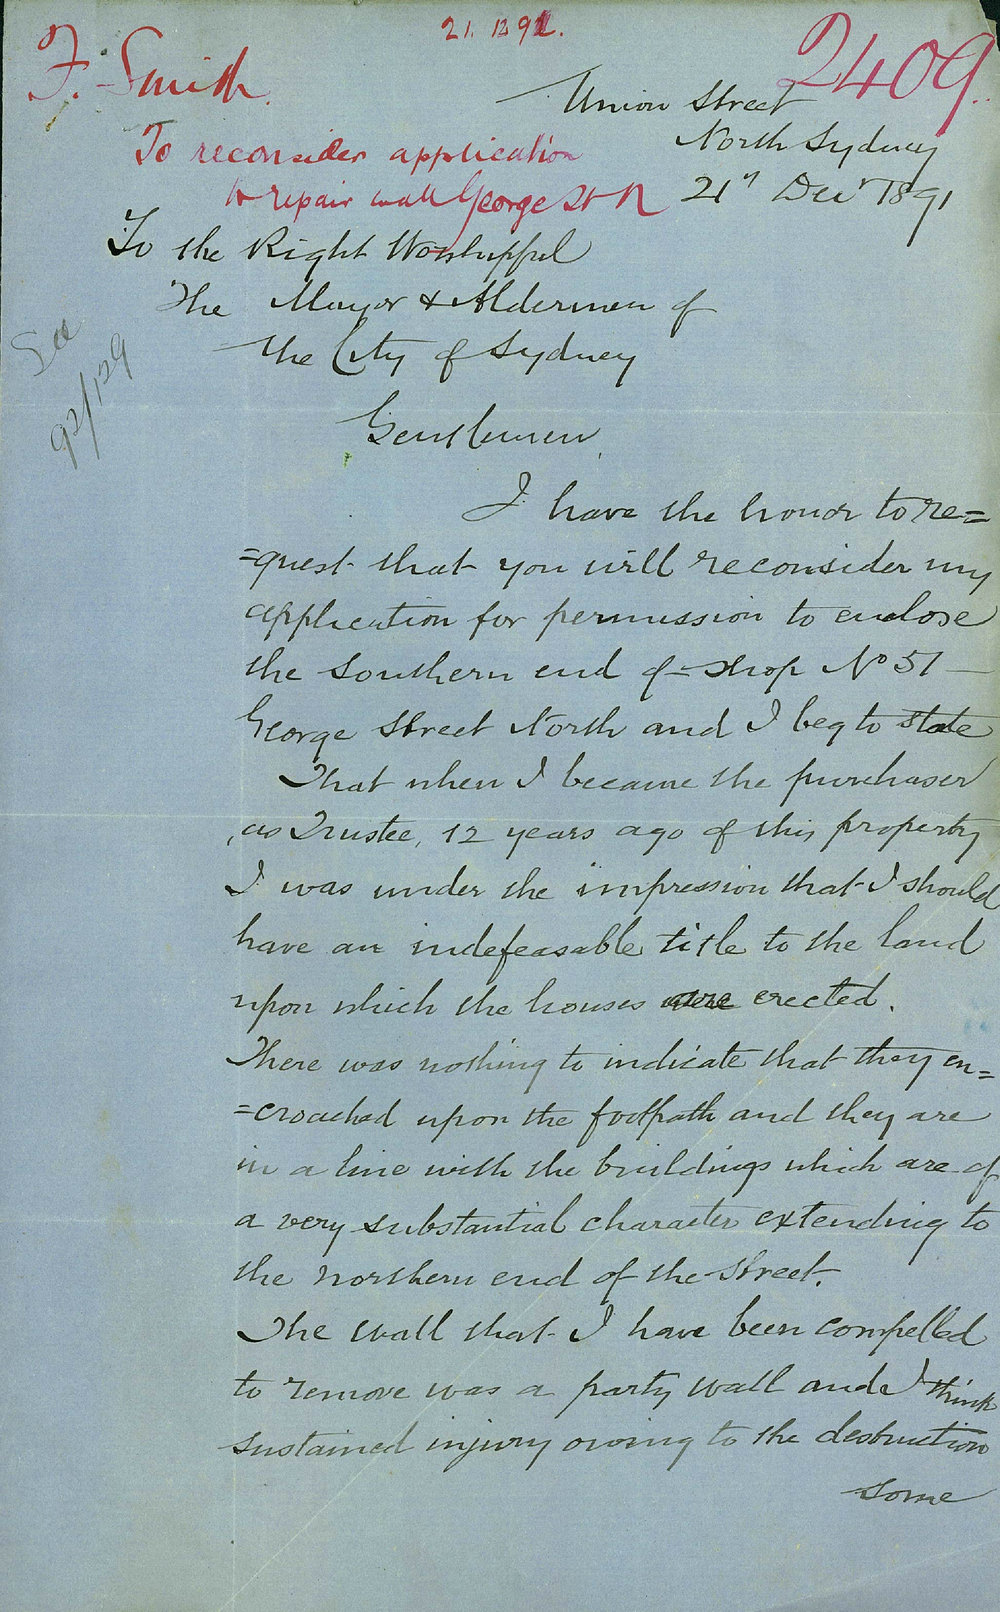 21.12.91.
2409.
F. Smith.
Union Street
North Sydney
21st Decr 1891
To reconsider application
to repair wall George St N
To the Right Worshipful
The Mayor & Aldermen of
the City of Sydney
See
92/129
Gentlemen
I have the honor to re=
=quest that you will reconsider my
application for permission to enclose
the Southern end of shop No 51
George Street North and I beg to state
That when I became the purchaser
as Trustee, 12 years ago of this property
I was under the impression that I should
have an indefeasable title to the land
upon which the houses were erected.
There was nothing to indicate that they en=
=croached upon the footpath and they are
in a line with the buildings which are of
a very substantial character extending to
the northern end of the Street.
The wall that I have been compelled
to remove was a party wall and I think
sustained injury owing to the destruction
some